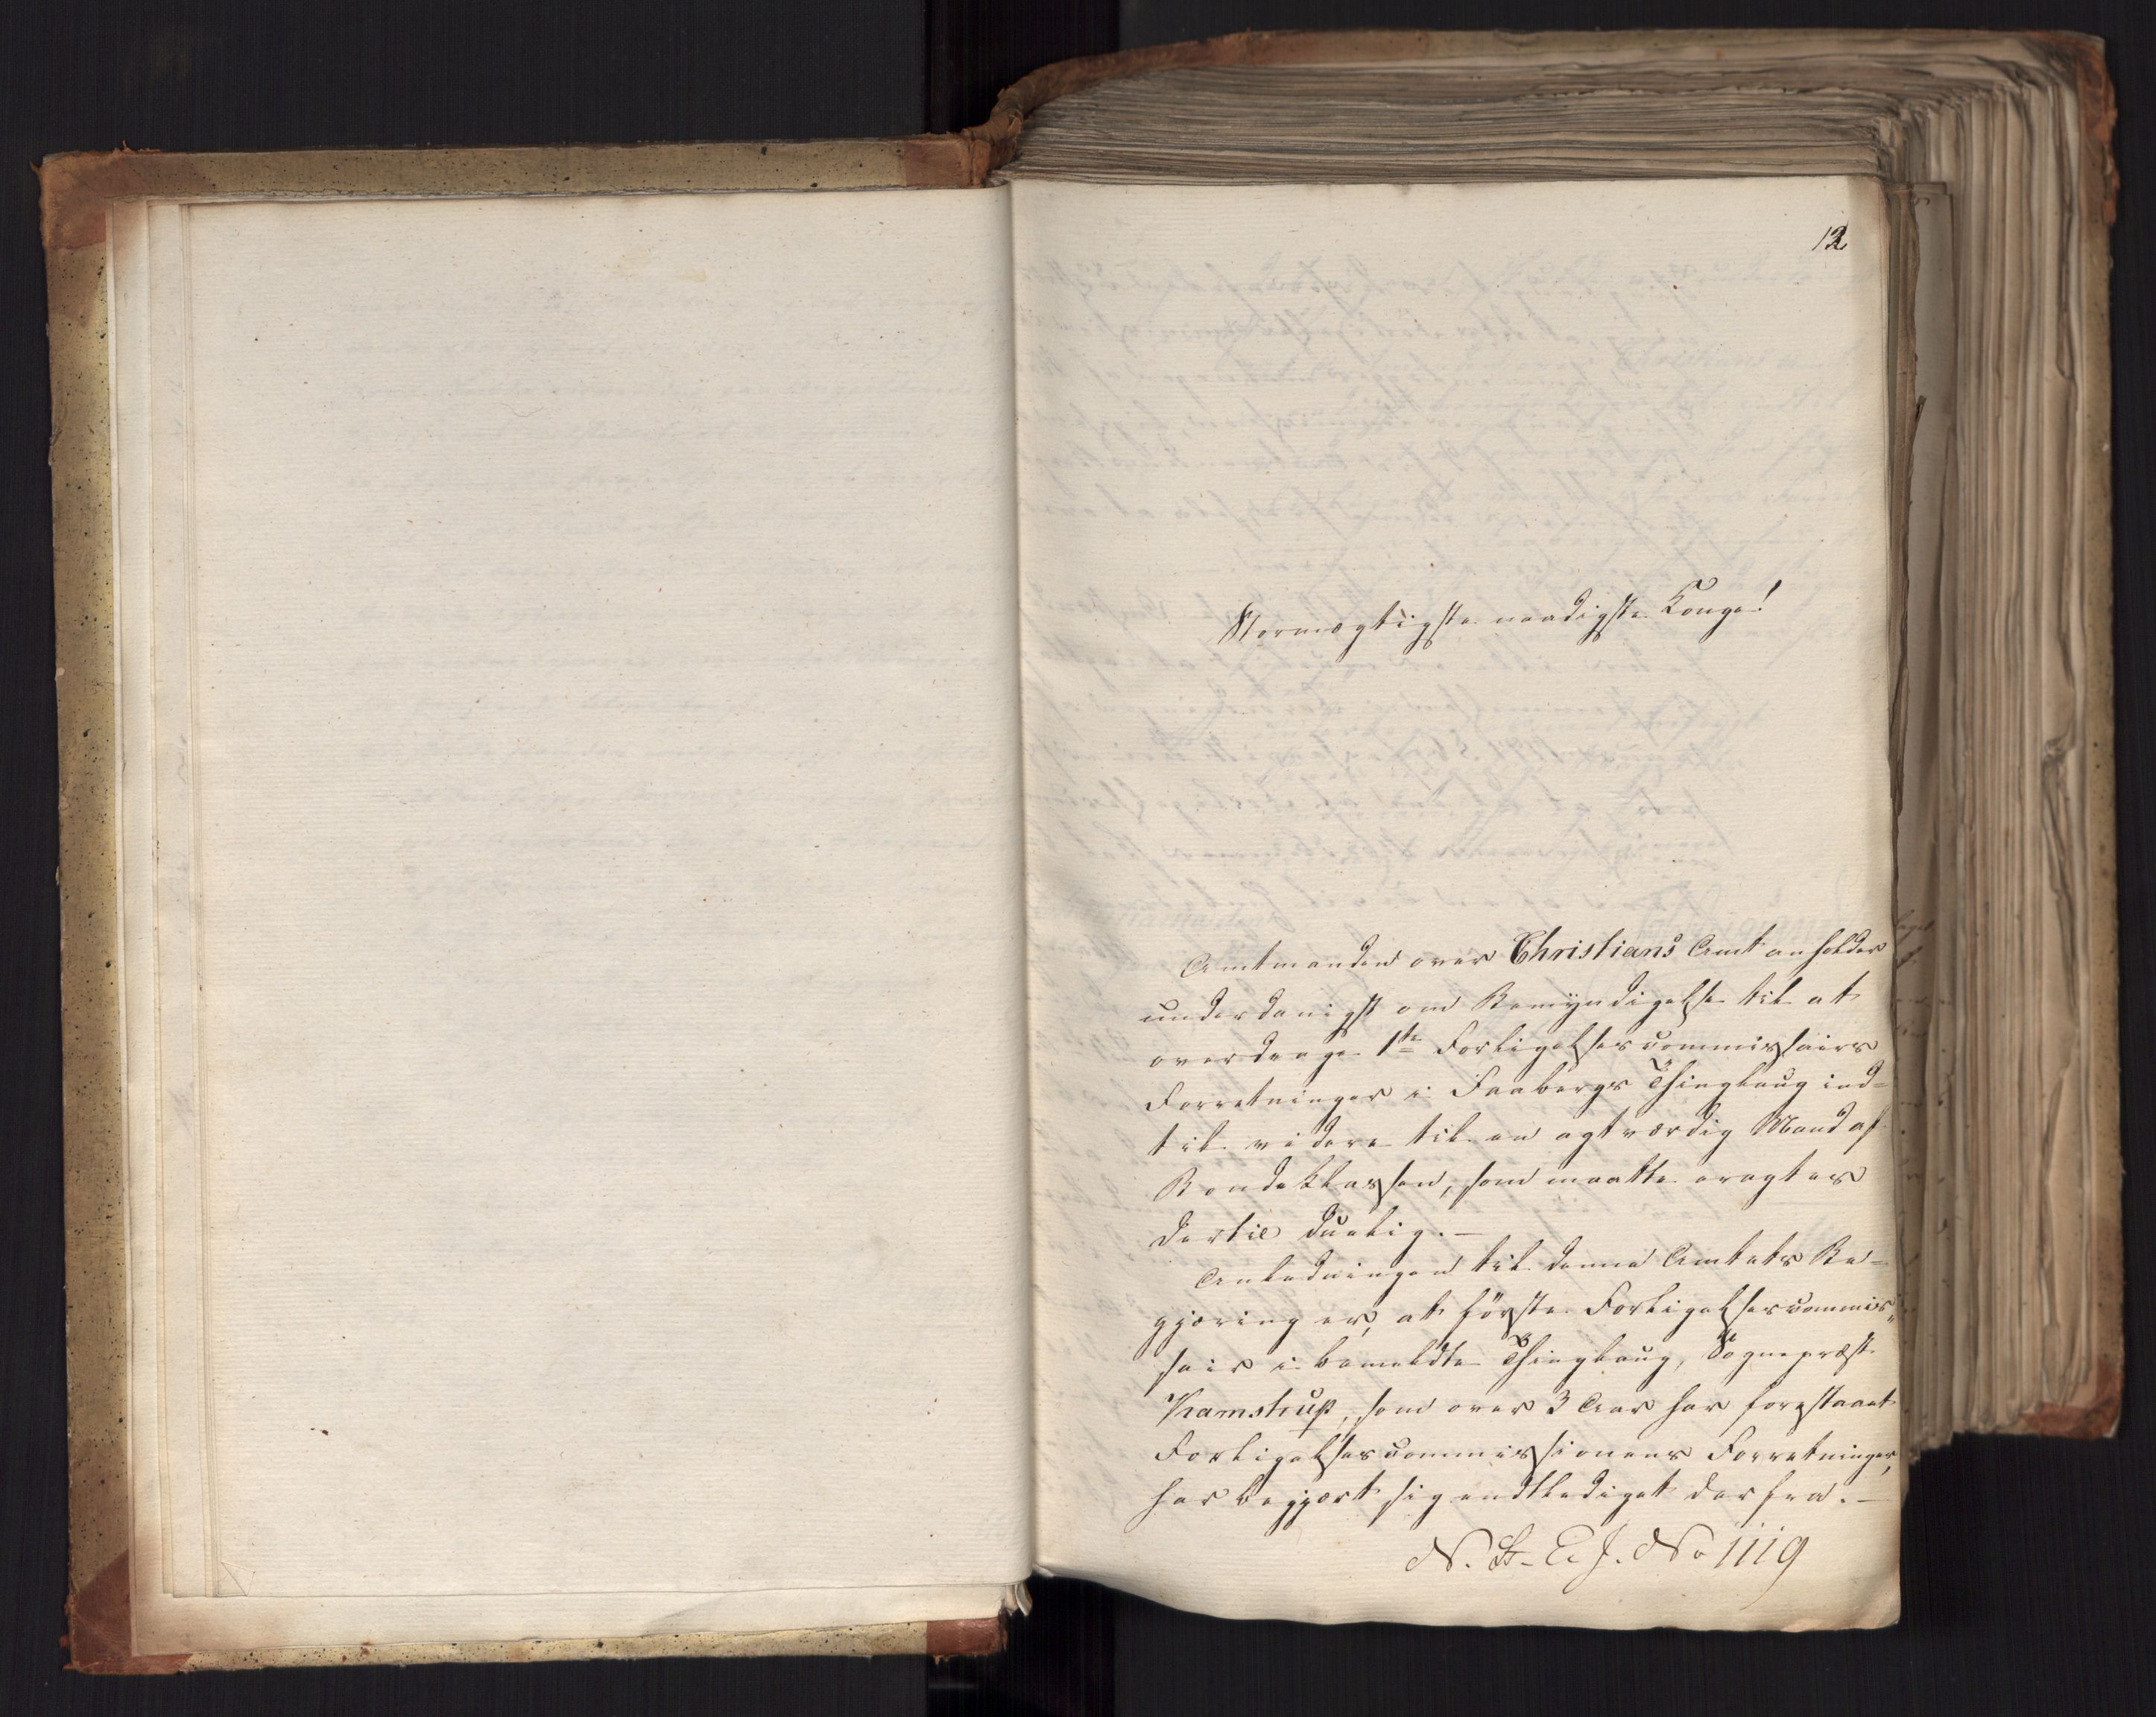 12
Stormægtigste naadigste Konge!
Amtmanden over Christians Amt anholder
underdanigst om Bemÿndigelse til at
overdrage 1ste Forligelsescommissairs
Forretninger i Faabergs Thinglaug ind=
til videre til en agtværdig Mand af
Bondeklassen, som maatte eragtes
dertil duelig. —
Anledningen til denne Amtets Be=
gjæring er, at første Forligelsescommis„
sair i bemeldte Thinglaug, Sognepræst
Kamstrup, som over 3 Aar har forestaaet
Forligelsescommissionens Forretninger,
har begjært sig endtlediget derfra. —
N. St. E. J. No 1119